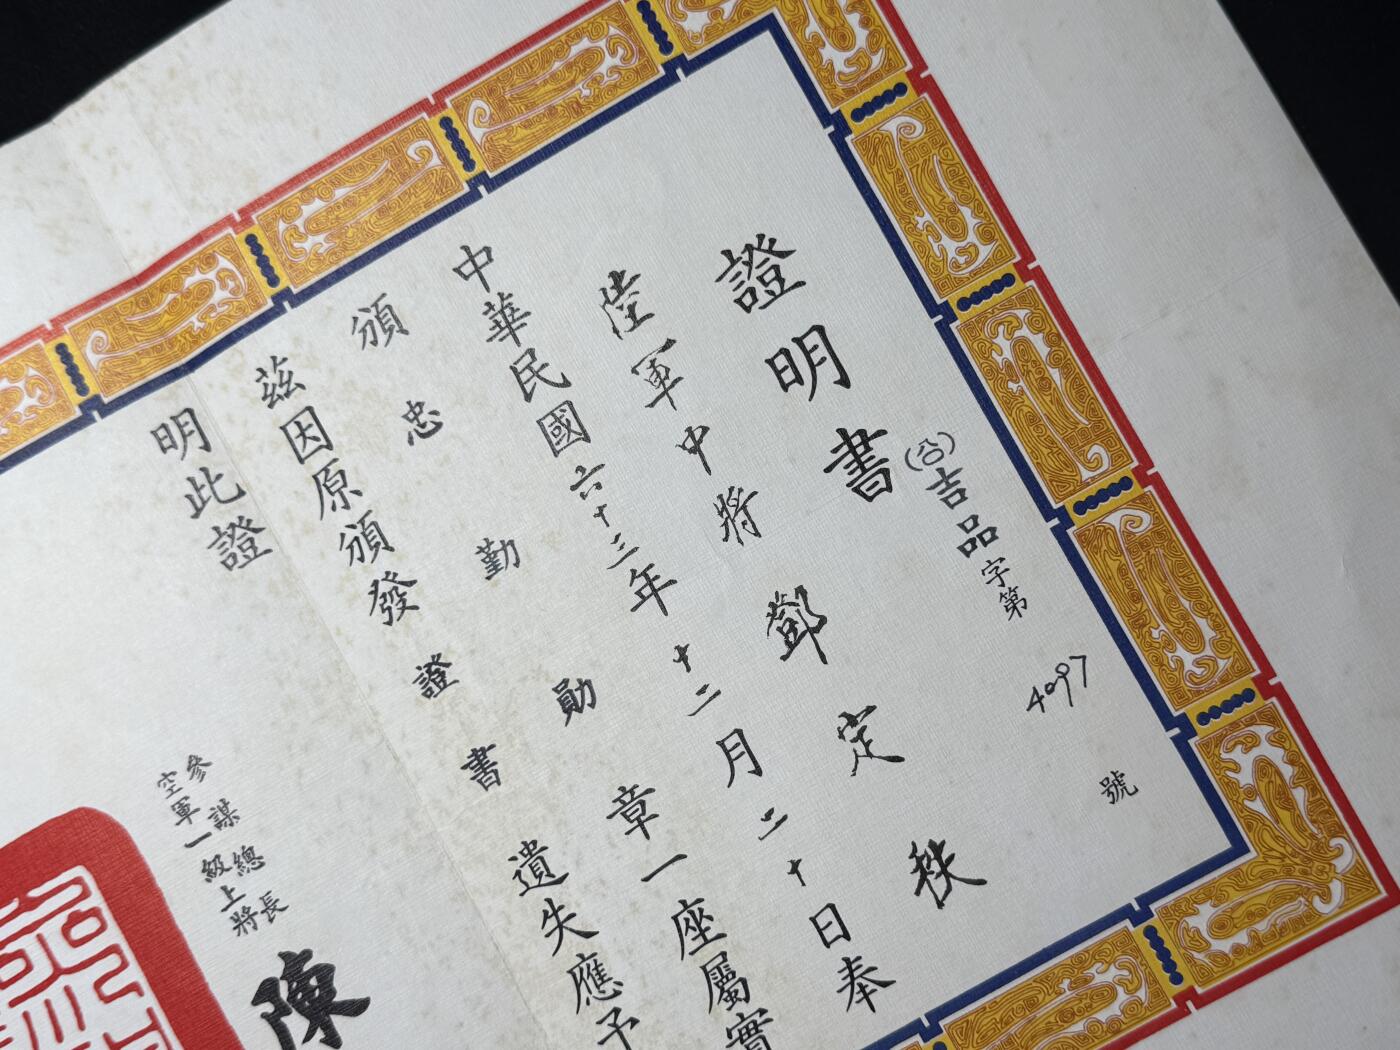 證明書
(公)吉品字第4097號
陸軍中將鄧定秩
中華民國六十三年十二月二十日奉
頒忠勤勛章一座屬實
茲因原頒發證書遺失應予
明此證
參謀總長
空軍一級上將
陳